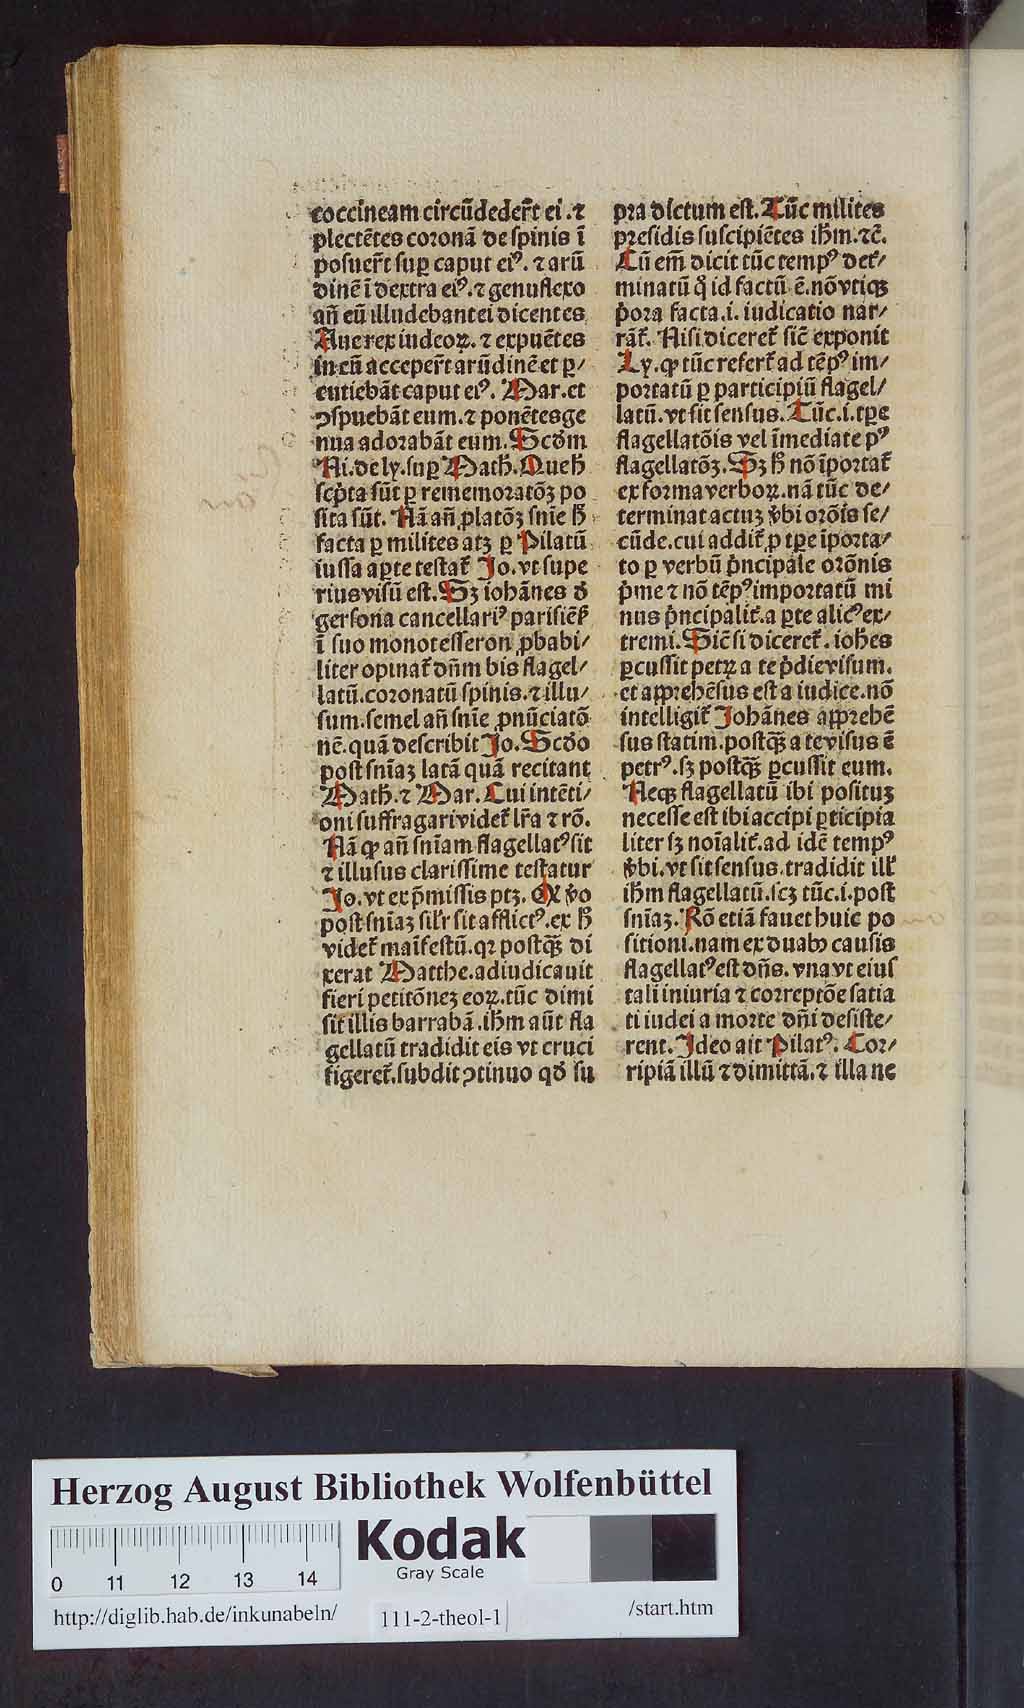 coccineam circūdeder̄t ei .⁊
plectētes coronā de ſpinis ī
poſuer̄t ſup̱ caput eiꝰ. ⁊ arū
dinē ī dextra eiꝰ.⁊ genuflexo
an̄ eū illudebant ei dicentes
Aue rex iudeoꝝ. ⁊ expuētes
in eū acceper̄t arūdinē et ꝑ/
cutiebāt caput eiꝰ. Mar. et
ꝯſpuebāt eum. ⁊ ponētes ge
nua adorabāt eum. Scd̄m
Ni. de ly. ſuꝑ Math. Que h̄
ſcp̄ta ſūt ꝑ rememoratōꝫ po
ſita ſūt. Nā an̄ ꝓlatōꝫ ſnīe h̄
facta ꝑ milites atꝫ ꝑ Pilatū
iuſſa aꝑte teſtat̄ Jo. vt ſupe
rius viſū eſt. Sꝫ iohānes d̄
gerſona cancellariꝰ pariſiēſ̄
ī ſuo monoteſſeron ꝓbabi/
liter opinat̄ dn̄m bis flagel/
latū. coronatū ſpinis. ⁊ illu/
ſum. ſemel an̄ ſnīe ꝓnūciatō
nē. quā deſcribit Jo. Scd̄o
poſt ſnīaꝫ latā quā recitant
Math. ⁊ Mar. Cui intēti/
oni ſuffragari videt̄ lr̄a ⁊ rō.
Nā ꝙ an̄ ſnīam flagellatꝰ ſit
⁊ illuſus clariſſime teſtatur
Jo. vt ex p̄miſſis ptꝫ. Qꝫ v̄o
poſt ſnīaꝫ ſil̄r ſit afflictꝰ. ex h̄
videt̄ maīfeſtū. qꝛ poſtqꝫ̄ di
xerat Matthe. adiudicauit
fieri petitōnez eoꝝ. tūc dimi
ſit illis barrabā. ih̄m aūt fla
gellatū tradidit eis vt cruci
figeret̄. ſubdit ꝯtinuo qd̄ ſu
pra dictum eſt. Tūc milites
preſidis ſuſcipiētes ih̄m. ⁊c̄.
Cū em̄ dicit tūc tempꝰ det̄/
minatū q̊ id factū ē. nō vtiqꝫ
p̄ora facta. i. iudicatio nar/
rāt̄. Niſi diceret̄ ſic̄ exponit
Ly. ꝙ tūc refert̄ ad tēpꝰ im/
portatū ꝑ participiū flagel/
latū. vt ſit ſenſus. Tūc. i. tꝑe
flagellatōis vel īmediate pꝰ
flagellatōꝫ. Sꝫ h̄ nō īportat̄
ex forma verboꝝ. nā tūc de/
terminat actuꝫ v̄bi orōis ſe/
cūde. cui addit̄ ꝓ tꝑe īporta/
to ꝑ verbū p̄ncipale orōnis
p̄me ⁊ nō tēpꝰ importatū mi
nus p̄ncipalit̄. a ꝑte alicꝰ ex/
tremi. Sic̄ ſi diceret̄. ioh̄es
ꝑcuſſit petrꝝ a te p̄die viſum.
et appreħēſus eſt a iudice. nō
intelligit̄ Johānes appreh̄ē
ſus ſtatim. poſtqꝫ̄ a te viſus ē
petrꝰ. ſꝫ poſtqꝫ̄ ꝑcuſſit eum.
Neqꝫ flagellatū ibi poſituꝫ
neceſſe eſt ibi accipi ꝑticipia
liter ſꝫ noīalit̄. ad idē tempꝰ
v̄bi. vt ſit ſenſus. tradidit ill̄
ih̄m flagellatū. ſcꝫ tūc. i. poſt
ſnīaꝫ. Rō etiā fauet huic po
ſitioni. nam ex duabꝰ cauſis
flagellatꝰ eſt dn̄s. vna vt eiuſ
tali iniuria ⁊ correptōe ſatia
ti iudei a morte dn̄i deſiſte/
rent. Ideo ait Pilatꝰ. Cor/
ripiā illū ⁊ dimittā. ⁊ illa ne
Herzog August Bibliothek Wolfenbüttel
Kodak
Gray Scale
0 11 12 13 14
http://diglib.hab.de/inkunabeln/
111-2-theol-1
/start.htm